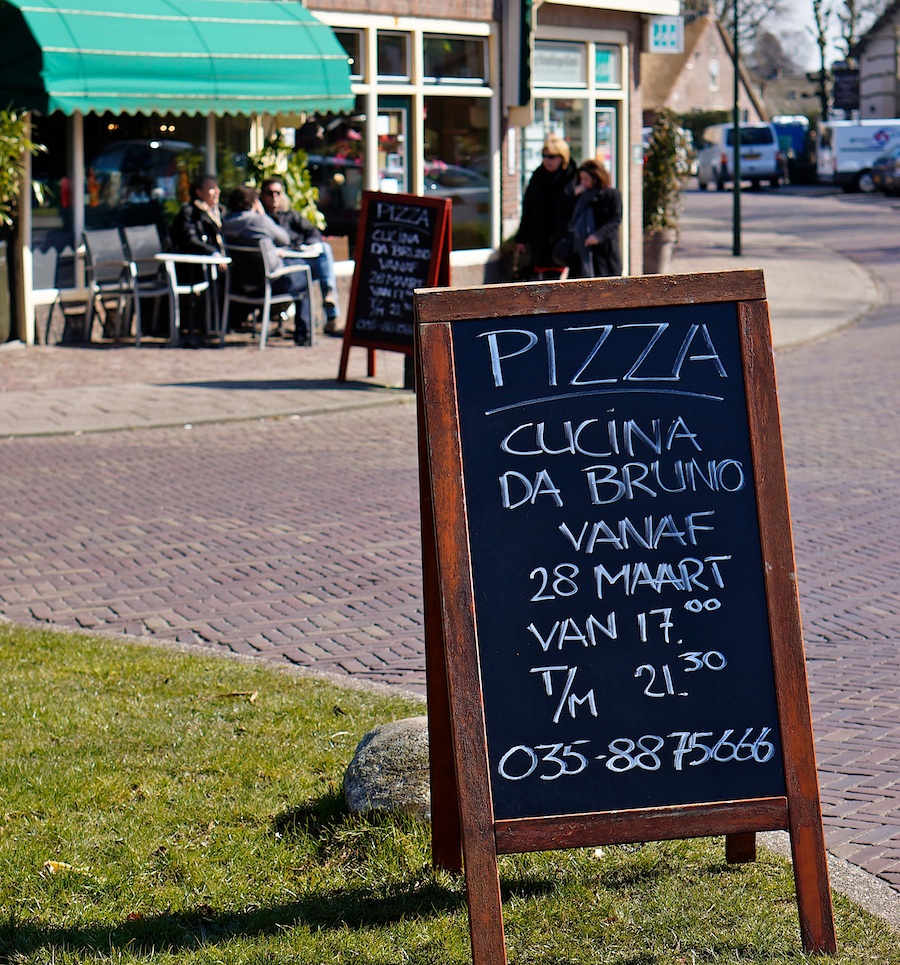 PIZZA
CUCINA
DA BRUNO
VANAF
28 MAART
VAN 17.00
T/M 21.30
035-8875666
PIZZA
CUCINA
DA BRUNO
VANAF
28 MAART
VAN 17.00
T/M 21.30
035-8875666